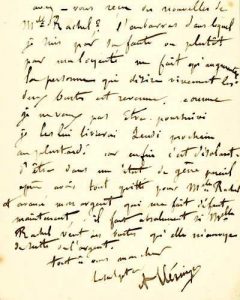 avez-vous reçu des nouvelles de
Mlle Rachel? l'embarras dans lequel
je suis par sa faute ou plutôt
par ma loyauté me fait
la personne qui désire vivement les
deux bustes est revenue, comme
je ne veux pas être poursuivi
je les lui livrerai Lundi prochain
au plus tard car enfin c'est désolant
d'être dans un état de gêne pareil
après avoir tout quitté pour Mlle Rachel
et avancé mon argent qui me fait défaut
maintenant, il faut absolument si Mlle
Rachel veut ses bustes qu'elle m'envoye
de suite de l'argent.
tout à vous